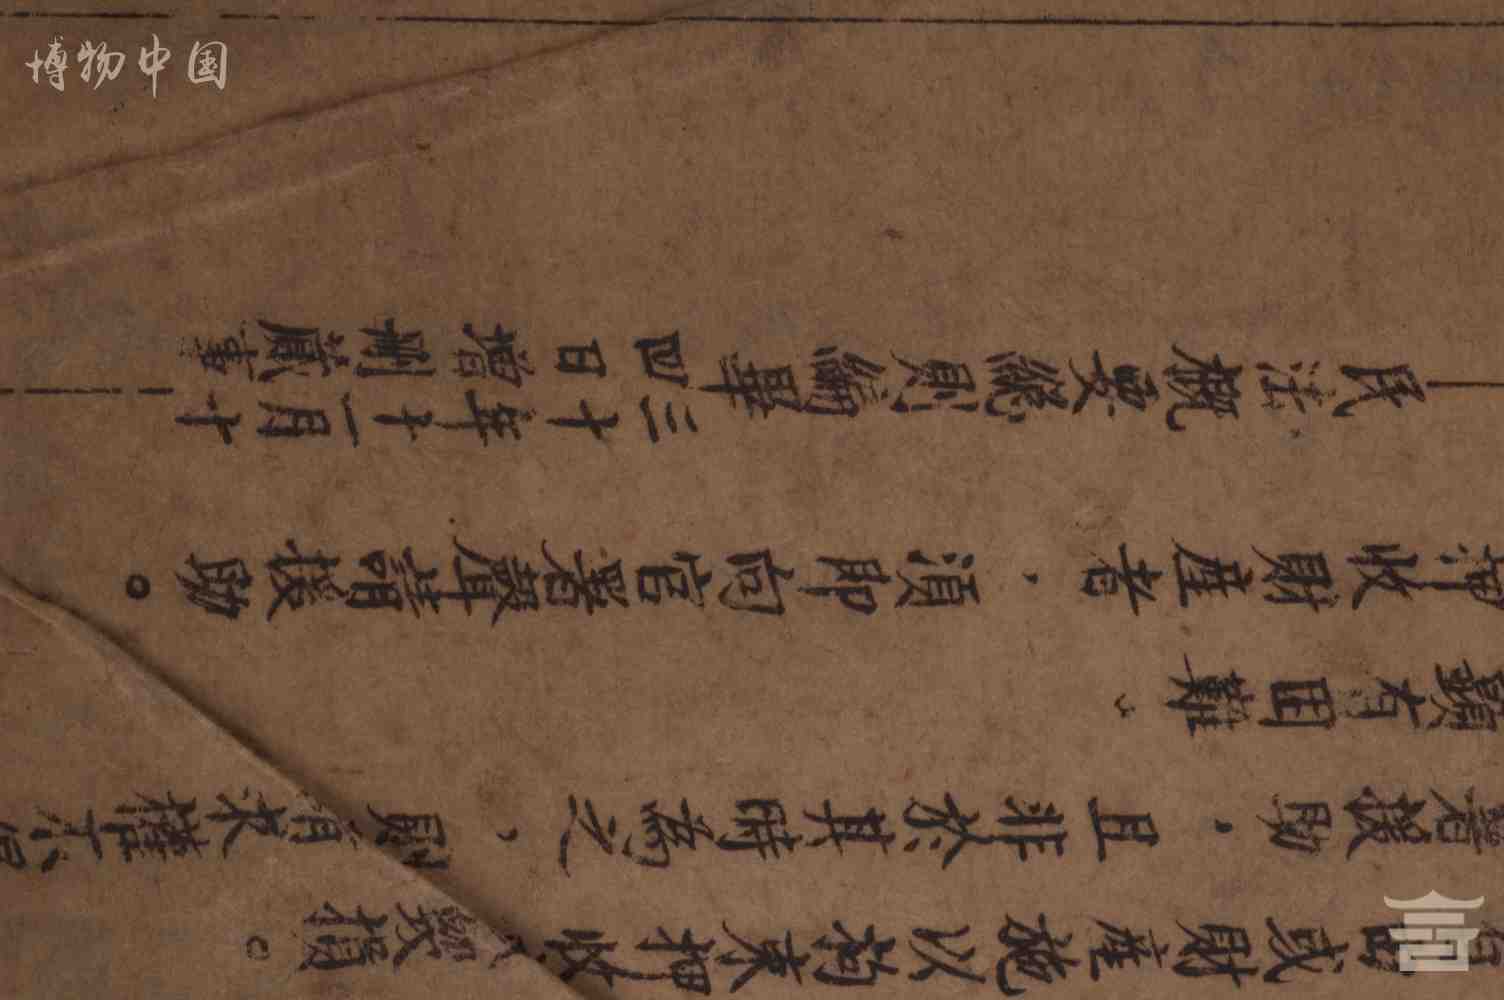 由或財產施以拘束押收、毀損。
署援助,且非於其時為之,則請求權不得
顯有困難。
押收財產者,須即向官署聲請援助。
民法概要總則編畢
三十年十一月十
四日增刪蕆事
博物中国